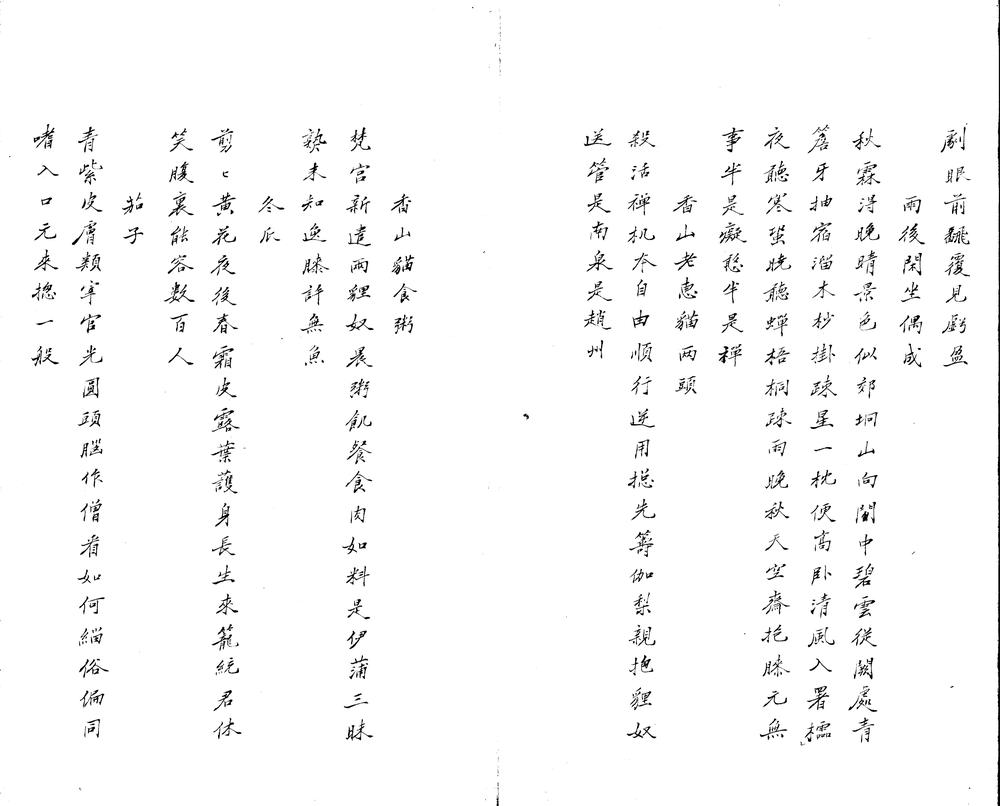 劇眼前翻覆見虧盈
雨後閑坐偶成
秋霖淂晚晴景色似郊坰山向閣中碧雲從闕處青
簷牙抽宿溜木杪掛疎星一枕便高卧清風入署櫺
夜聽寒蛩晚聽蟬梧桐疎雨晚秋天空齋抱膝元無
事半是癡憨半是禪
香山老惠貓兩頭
殺活禅机夲自由順行逆用揔先籌伽梨親抱貍奴
送管是南泉是趙州
香山貓食粥
梵宮新遣兩貍奴晨粥飢餐食肉如料是伊蒲三昧
熟未知逸膝許無魚
冬瓜
剪〻黄花夜後春霜皮露葉護身長生來籠統君休
笑腹裏能容数百人
茄子
青紫皮膚類宰官光圓頭腦作僧看如何緇俗偏同
嗜入口元来揔一般